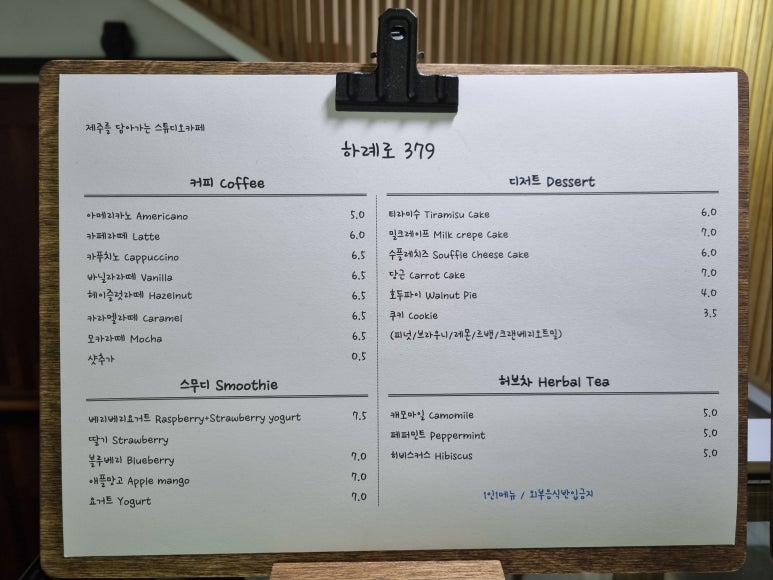 제주를 담아가는 스튜디오카페
하례로 379
커피 Coffee
아메리카노 Americano 5.0
카페라떼 Latte 6.0
카푸치노 Cappuccino 6.5
바닐라라떼 Vanilla 6.5
헤이즐럿라떼 Hazelnut 6.5
카라멜라떼 Caramel 6.5
모카라떼 Mocha 6.5
샷추가 0.5
스무디 Smoothie
베리베리요거트 Raspberry+Strawberry yogurt 7.5
딸기 Strawberry
블루베리 Blueberry 7.0
애플망고 Apple mango 7.0
요거트 Yogurt 7.0
디저트 Dessert
티라미수 Tiramisu Cake 6.0
밀크레이프 Milk crepe Cake 7.0
수플레치즈 Souffle Cheese Cake 6.0
당근 Carrot Cake 7.0
호두파이 Walnut Pie 4.0
쿠키 Cookie 3.5
(피넛/브라우니/레몬/르뱅/크랜베리오트밀)
허브차 Herbal Tea
캐모마일 Camomile 5.0
페퍼민트 Peppermint 5.0
히비스커스 Hibiscus 5.0
1인1메뉴 / 외부음식반입금지